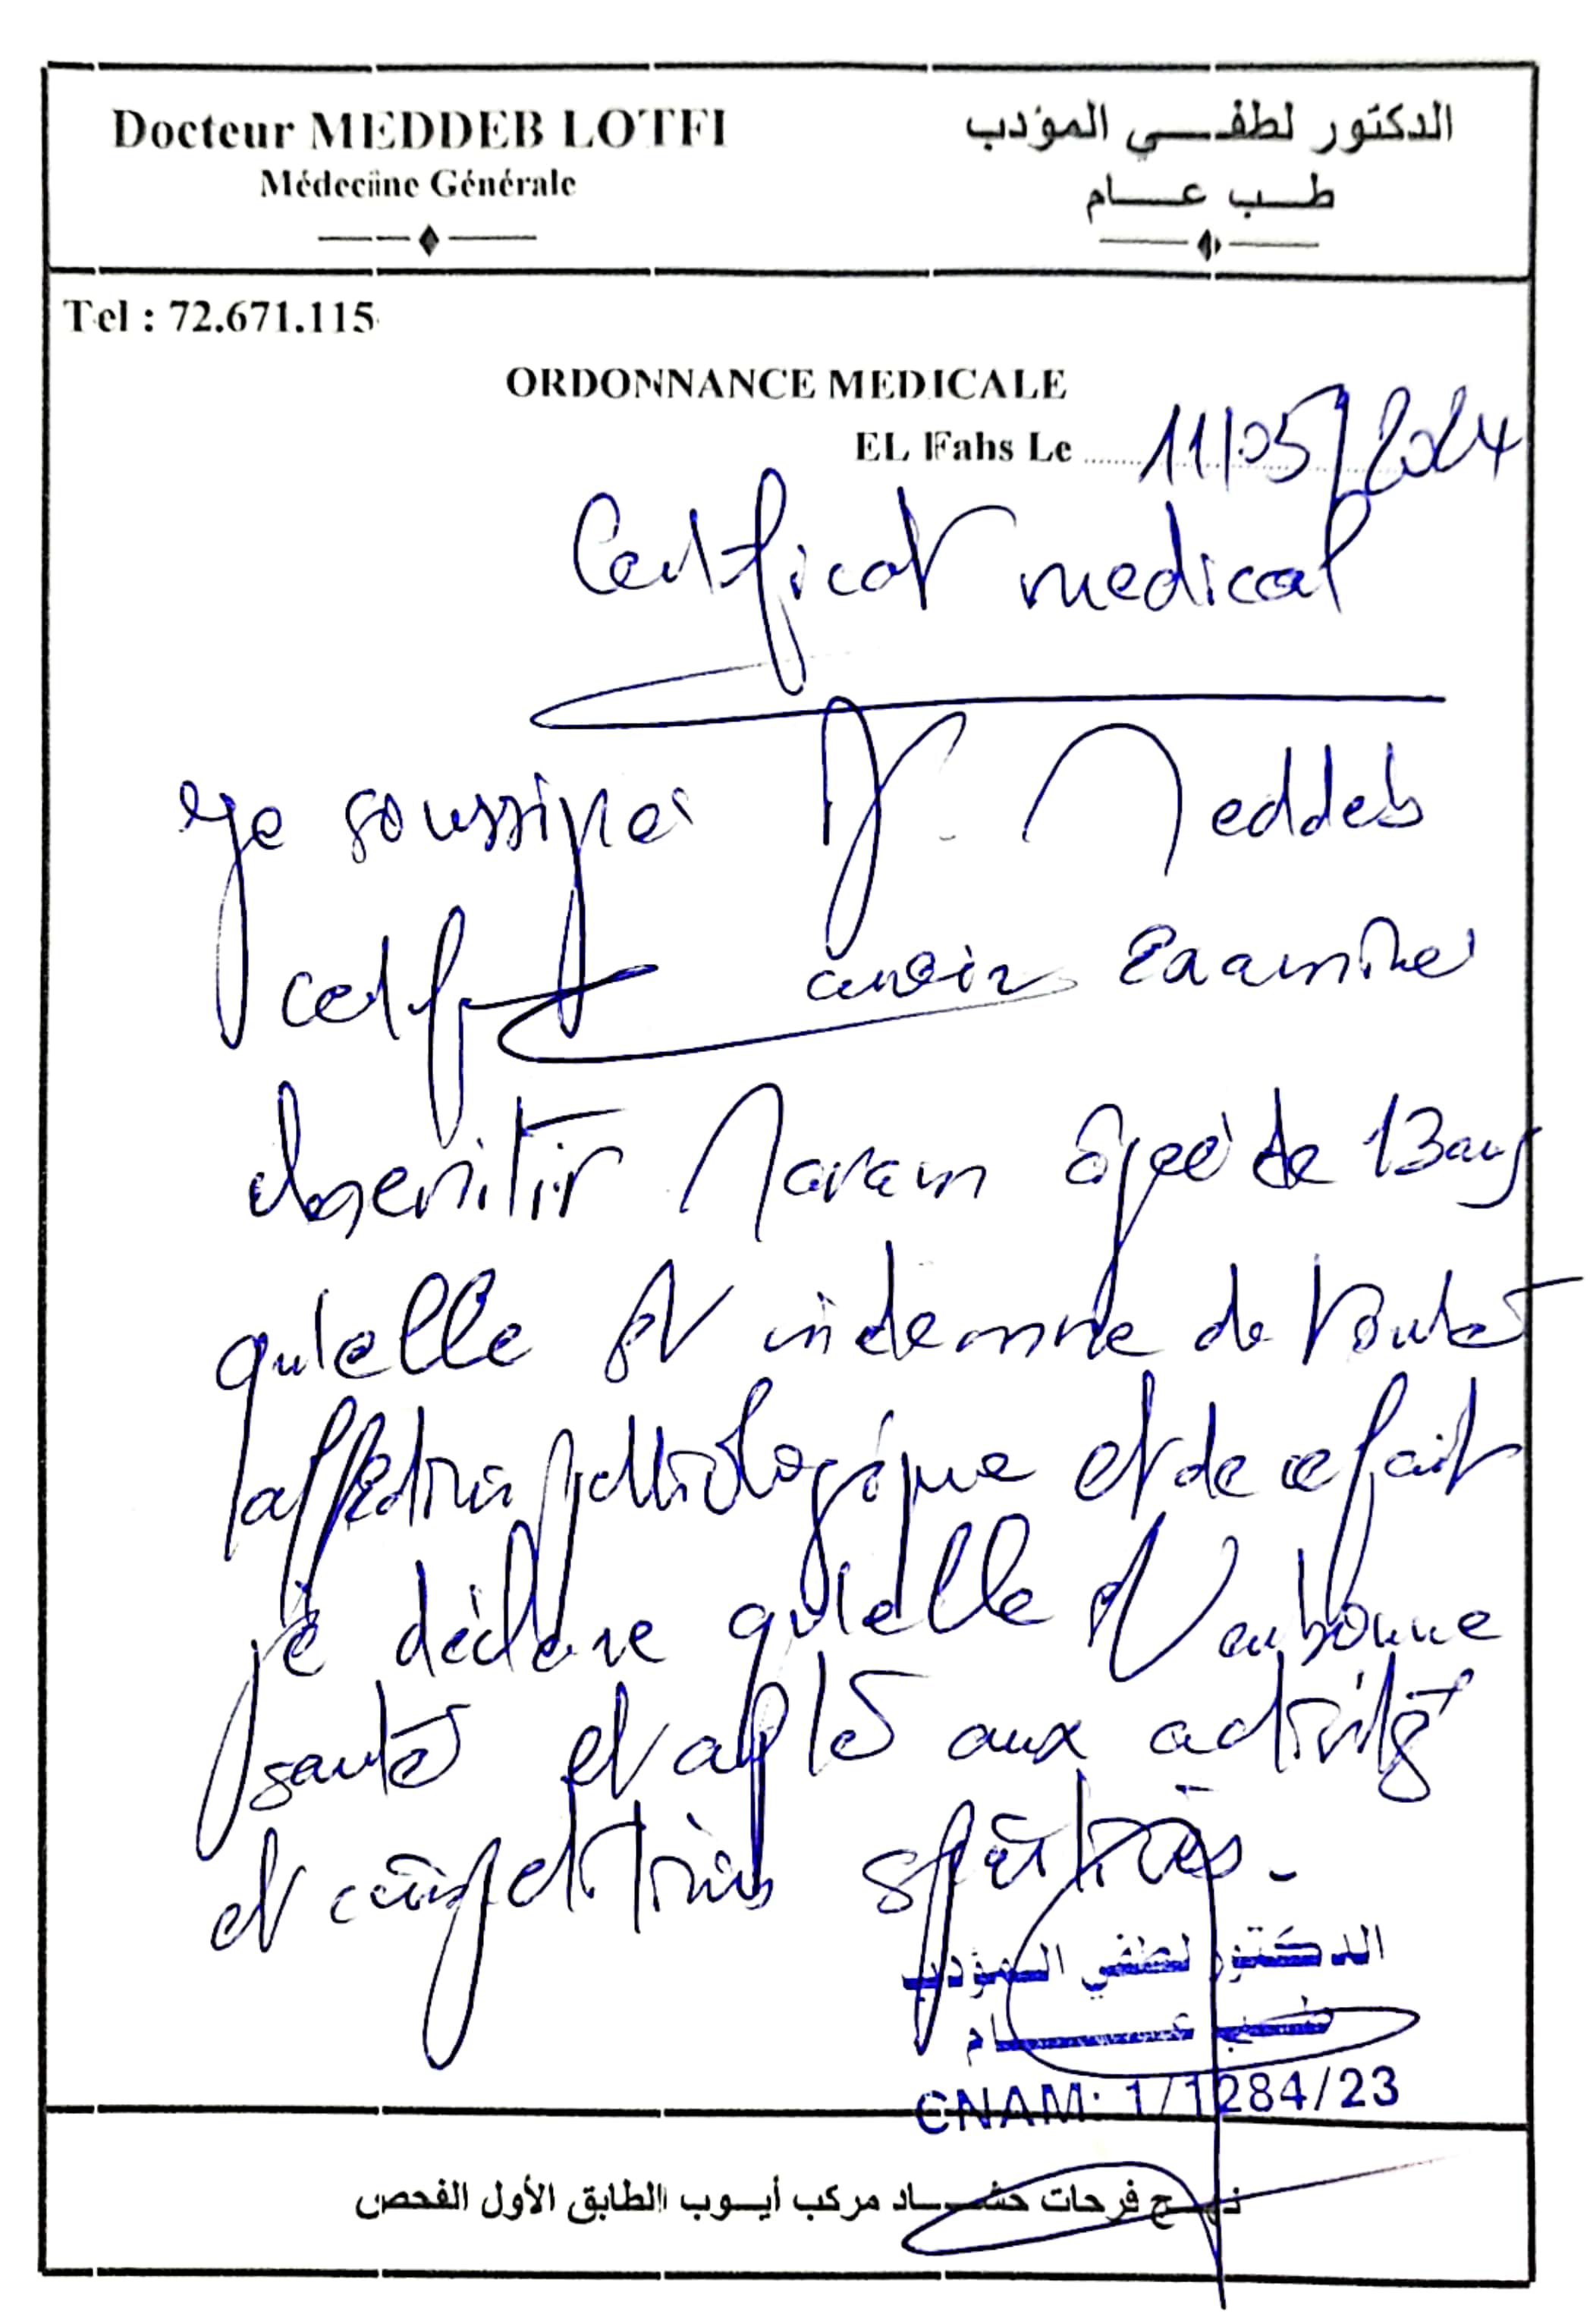 Docteur MEDDEB LOTFI
Médeciine Générale
الدكتور لطفـــي المؤدب
طــب عــــام
Tel : 72.671.115
ORDONNANCE MEDICALE
EL Fahs Le 11/05/2024
Certificat medical
Je soussigné Dr. Meddeb
certifie avoir examiné
Maram âgée de 13 ans
qu'elle est indemne de toute
affection pathologique et de ce fait
je déclare qu'elle est en bonne
santé et apte aux activités
et compétitions sportives.
الدكتور لطفي المؤدب
طب عـــــام
CNAM: 1/1284/23
نهـج فرحات حشـــاد مركب أيــوب الطابق الأول الفحص